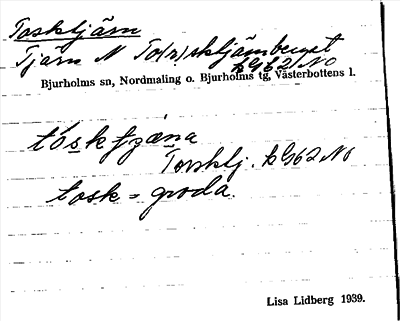 Tosktjärn
Tjärn N To(r)sktjärnberget
hG62NO
Bjurholms sn, Nordmaling o. Bjurholms tg, Västerbottens l.
Torsktj. hG62NO
tosk = groda.
Lisa Lidberg 1939.